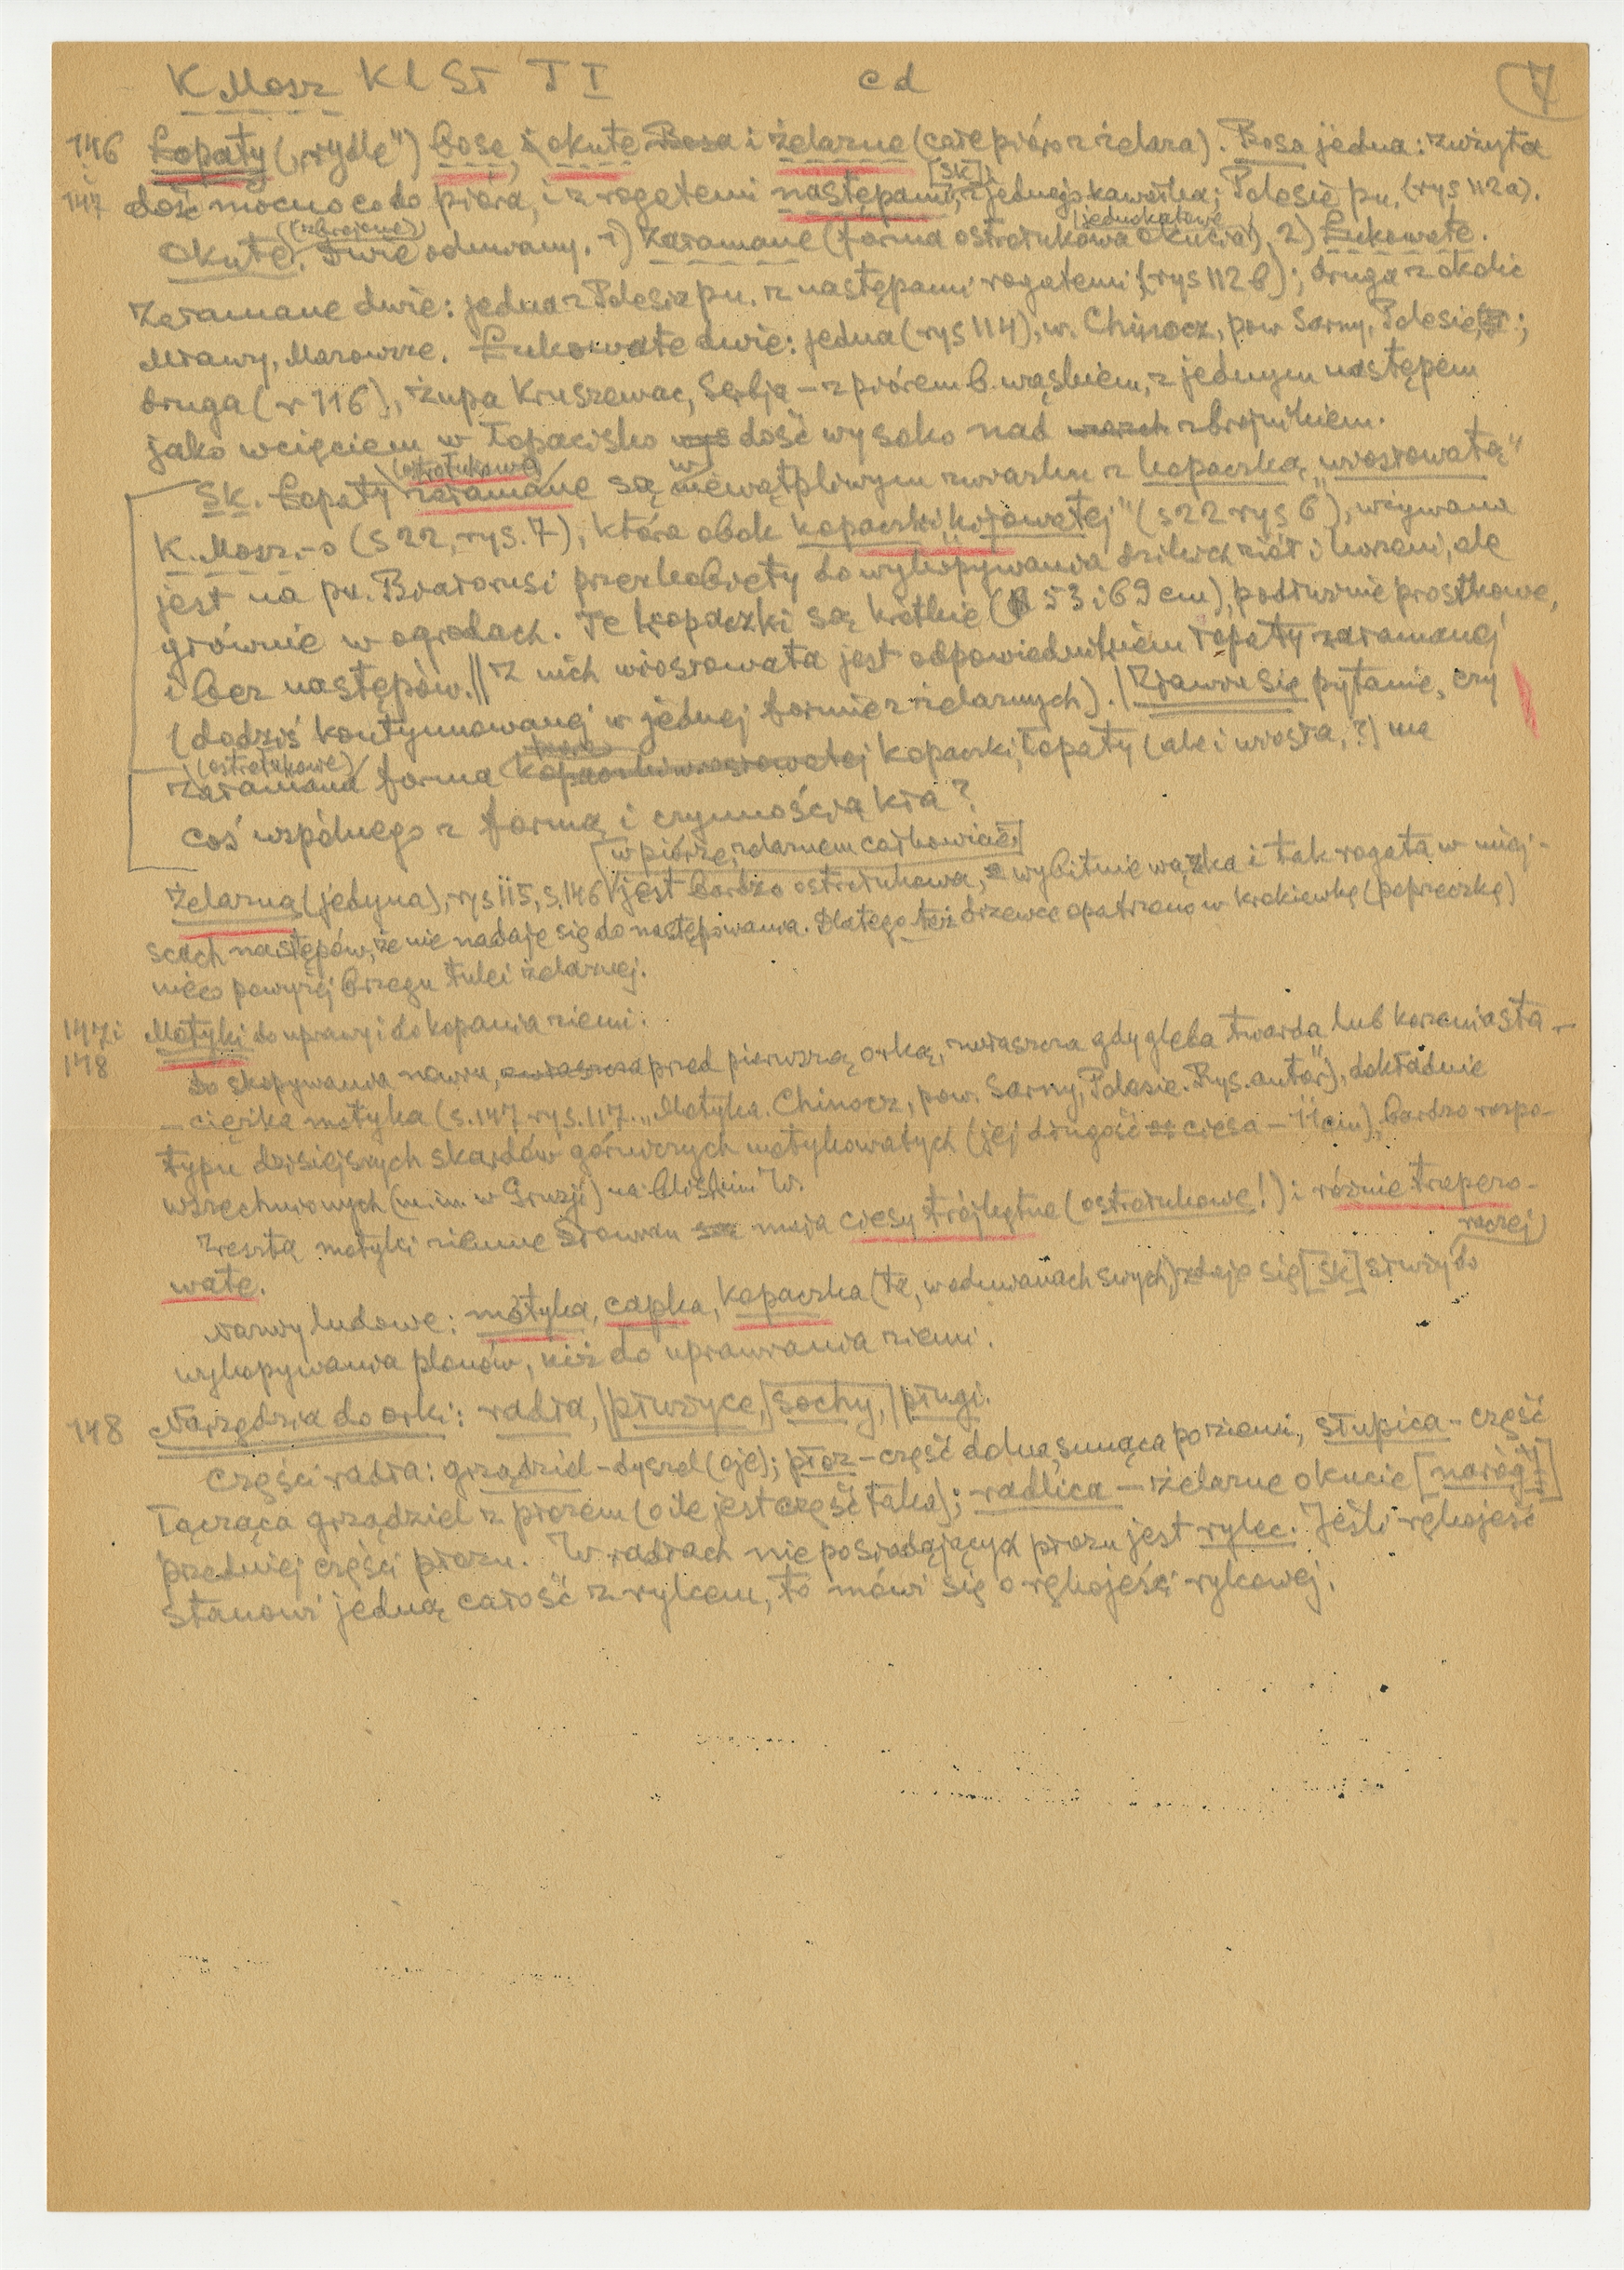 K. Mosz Kl St T I cd 7
146 Łopaty („rydle") bose, i okute Bosa i żelazne (całe pióro z żelaza). Bosa jedna: zużyta
i 147 dość mocno co do pióra, i z rogatemi następami, [SK] z jednego kawałka; Polesie pn. (rys 112a).
Okute (zbrojone). Dwie odmiany. 1) Załamane (forma ostrołukowa jednokątowe okucia), 2) Łukowate.
Załamane dwie: jedna z Polesia pn. z następami rogatemi (rys 112b); druga z okolic
Mławy, Mazowsze. Łukowate dwie: jedna (rys 114), w. Chinocz, pow Sarny, Polesie;
druga (r 116), żupa Kruszewac, Serbja – z piórem b. wąskiem, z jednym następem
jako wcięciem w łopacisko dość wysoko nad zbrojnikiem.
SK. Łopaty (ostrołukowe) załamane są w niewątpliwym związku z kopaczką „wiosłowatą"
K. Mosz.-o (s 22, rys. 7), która obok kopaczki „kijowatej" (s 22 rys 6), używana
jest na pn. Białorusi przez kobiety do wykopywania dzikich ziół i korzeni, ale
głównie w ogrodach. Te kopaczki są krótkie (53 i 69 cm), podłużnie prostkowe,
i bez następów. || Z nich wiosłowata jest odpowiednikiem łopaty załamanej
(dodziś kontynuowanej w jednej formie z żelaznych). | Zjawia się pytanie, czy
załamana (ostrołukowe) forma kopaczki wiosłowatej kopaczki, łopaty (ale i wiosła, ?) ma
coś wspólnego z formą i czynnością kła?
Żelazna (jedyna), rys 115, s. 146 [w piórze, żelaznem całkowicie,] jest bardzo ostrołukowa, wybitnie wązka i tak rogata w miej-
scach następów, że nie nadaje się do następowania. Dlatego też drzewce opatrzono w krokiewkę (poprzeczkę)
nieco powyżej brzegu tulei żelaznej.
147 i 148 Motyki do uprawy i do kopania ziemi.
Do skopywania nowin, zwłaszcza przed pierwszą orką, zwłaszcza gdy gleba twarda lub korzeniasta –
– ciężka motyka (s. 147 rys. 117. „Motyka. Chinocz, pow. Sarny, Polesie. Rys. autor"), dokładnie
typu dzisiejszych skardów górniczych motykowatych (jej długość ciesa – 11 cm), bardzo rozpo-
wszechnionych (m. in. w Gruzji) na bliskim W.
Zresztą motyki ziemne Słowian są mają ciesy trójkątne (ostrołukowe!) i różnie trapezo-
wate.
Nazwy ludowe: motyka, capka, kopaczka (ta, w odmianach swych, zdaje się [SK] służy raczej do
wykopywania plonów, niż do uprawiania ziemi.
148 Narzędzia do orki: radła, | płużyce, | sochy, | pługi.
Części radła: grządziel – dyszel (oje); płoz – część dolna, sunąca po ziemi, słupica – część
łącząca grządziel z płozem (o ile jest część taka); radlica – żelazne okucie [naróg!!]
przedniej części płozu. W radłach nie posiadających płozu jest rylec. Jeśli rękojeść
stanowi jedną całość z rylcem, to mówi się o rękojeści rylcowej.